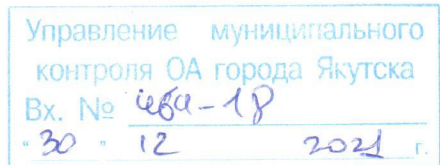 Управление муниципального
контроля ОА города Якутска
Вх. №
"30" 12 2021 г.